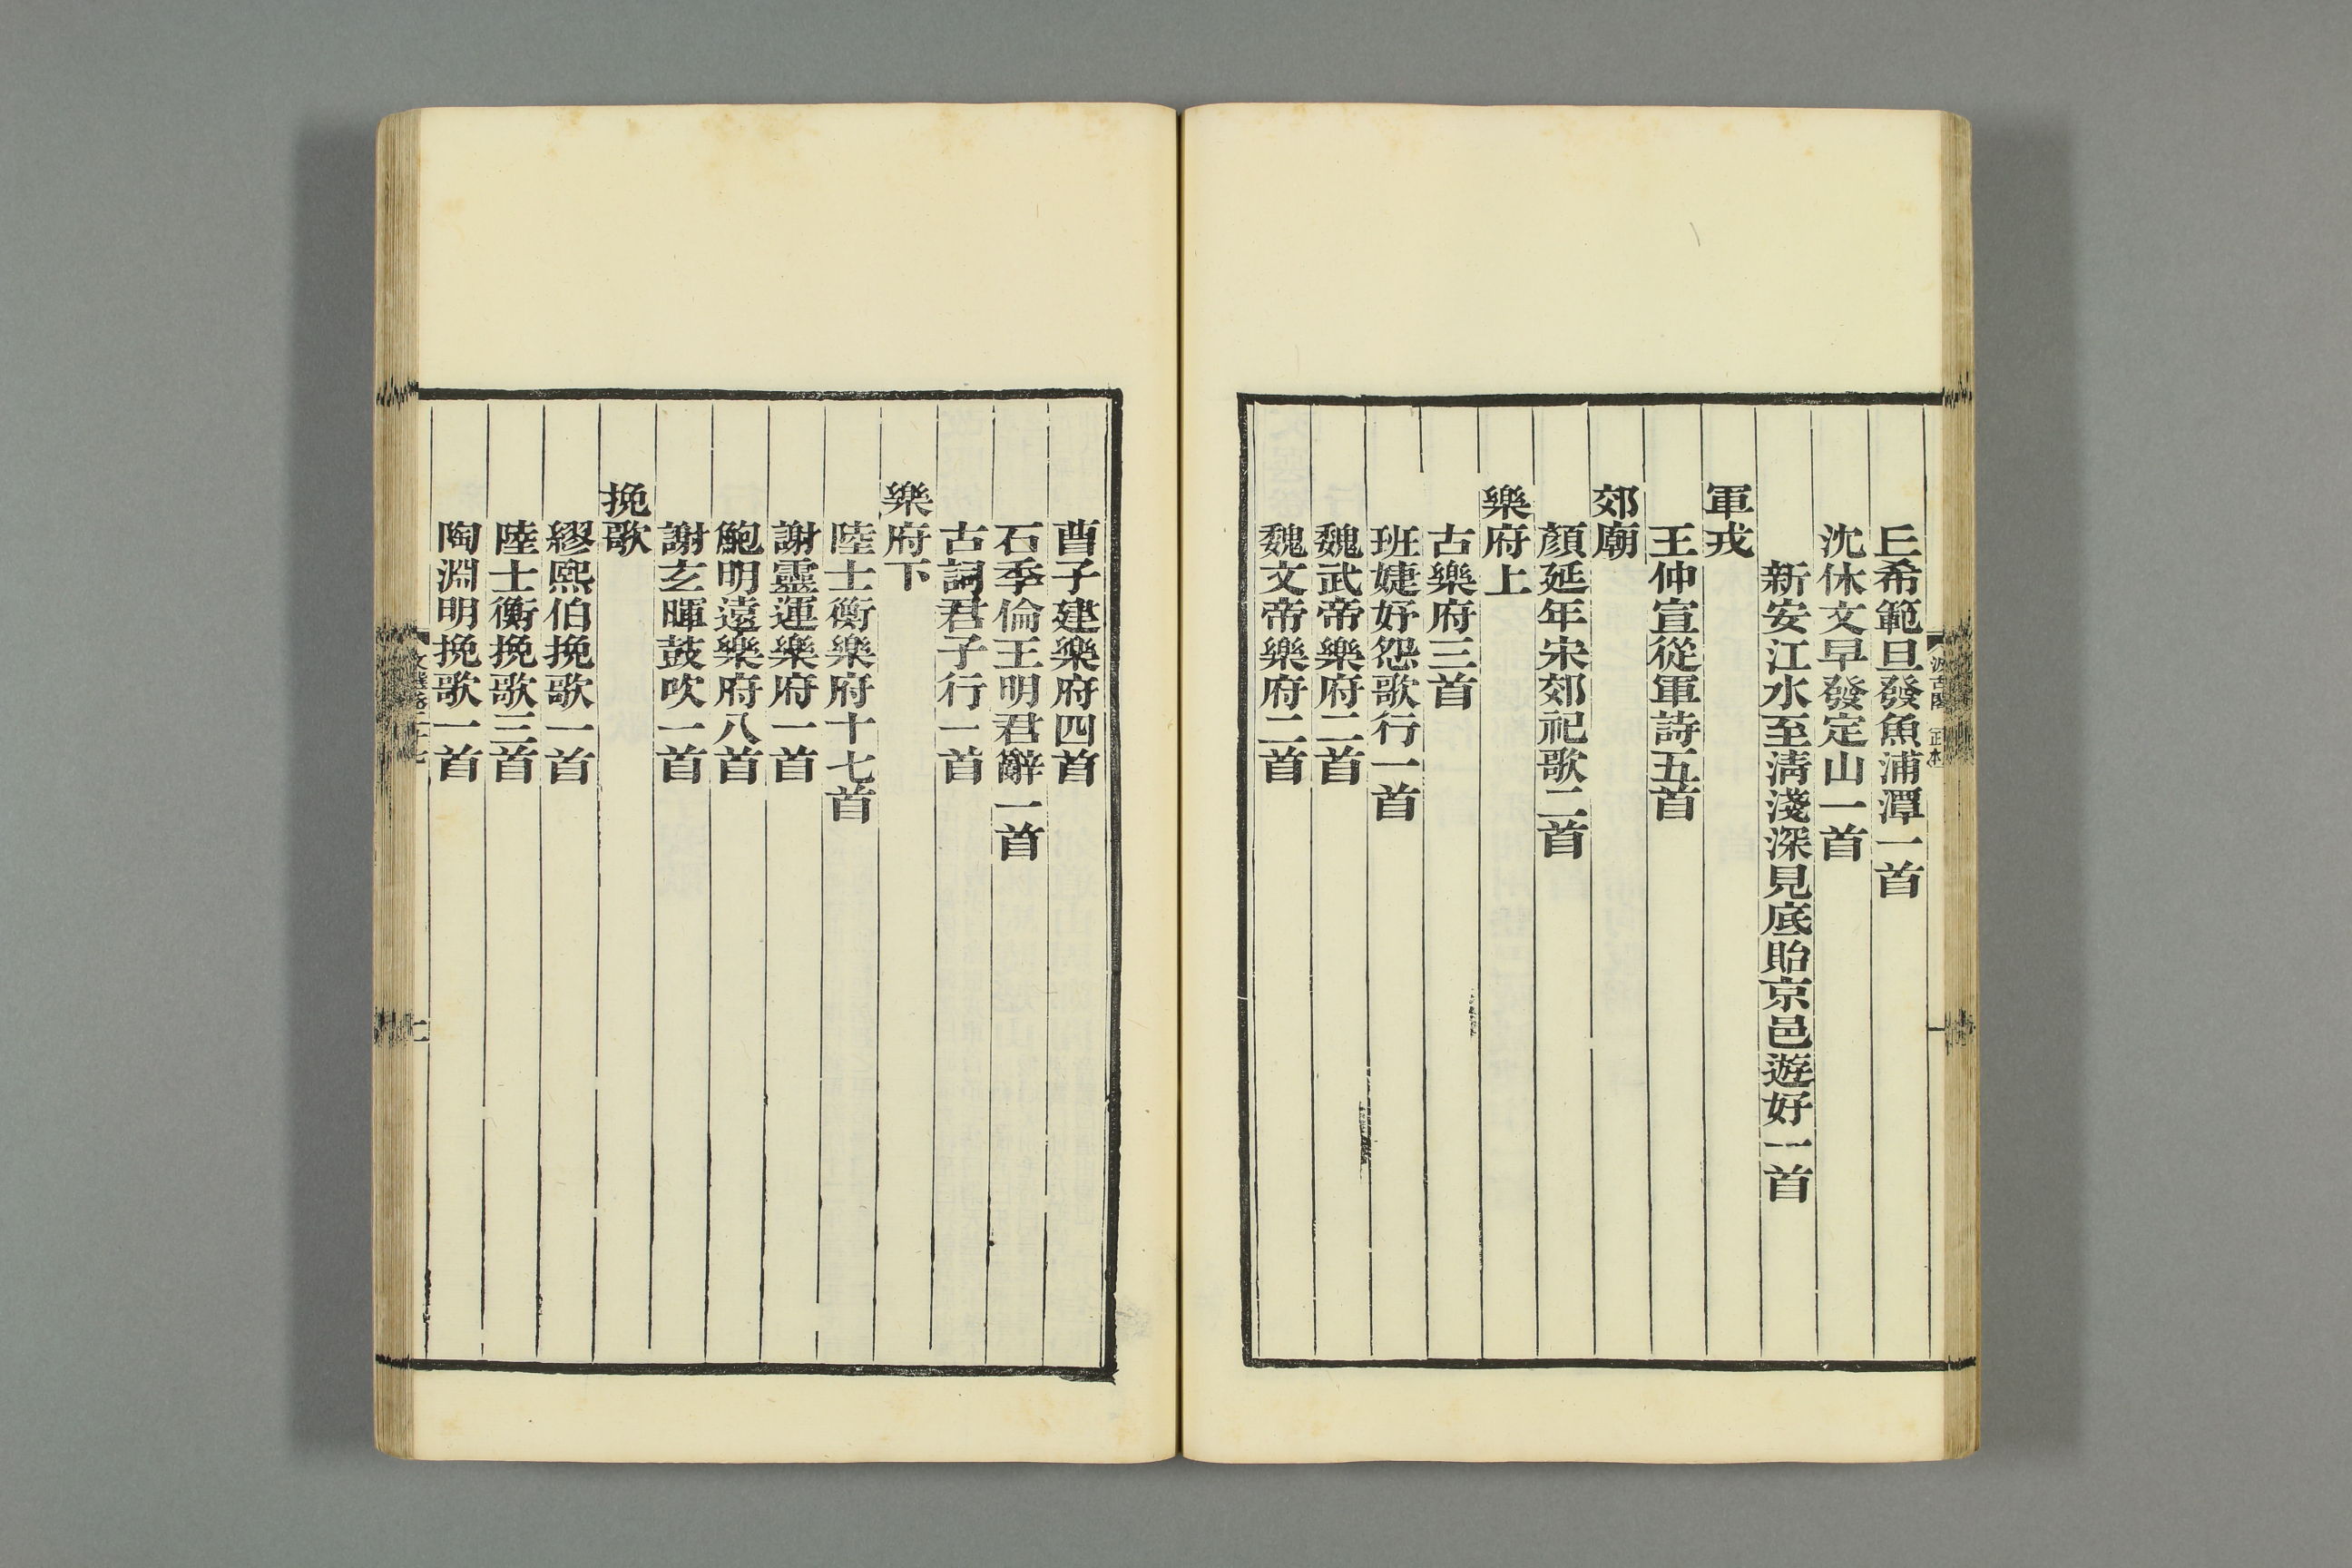 丘希範旦發魚浦潭一首
沈休文早發定山一首
新安江水至淸淺深見底貽京邑遊好一首
軍戎
王仲宣從軍詩五首
郊廟
顏延年宋郊祀歌二首
樂府上
古樂府三首
班婕妤怨歌行一首
魏武帝樂府二首
魏文帝樂府二首
曹子建樂府四首
石季倫王明君辭一首
古詞君子行一首
樂府下
陸士衡樂府十七首
謝靈運樂府一首
鮑明遠樂府八首
謝玄暉鼓吹一首
挽歌
繆熙伯挽歌一首
陸士衡挽歌三首
陶淵明挽歌一首